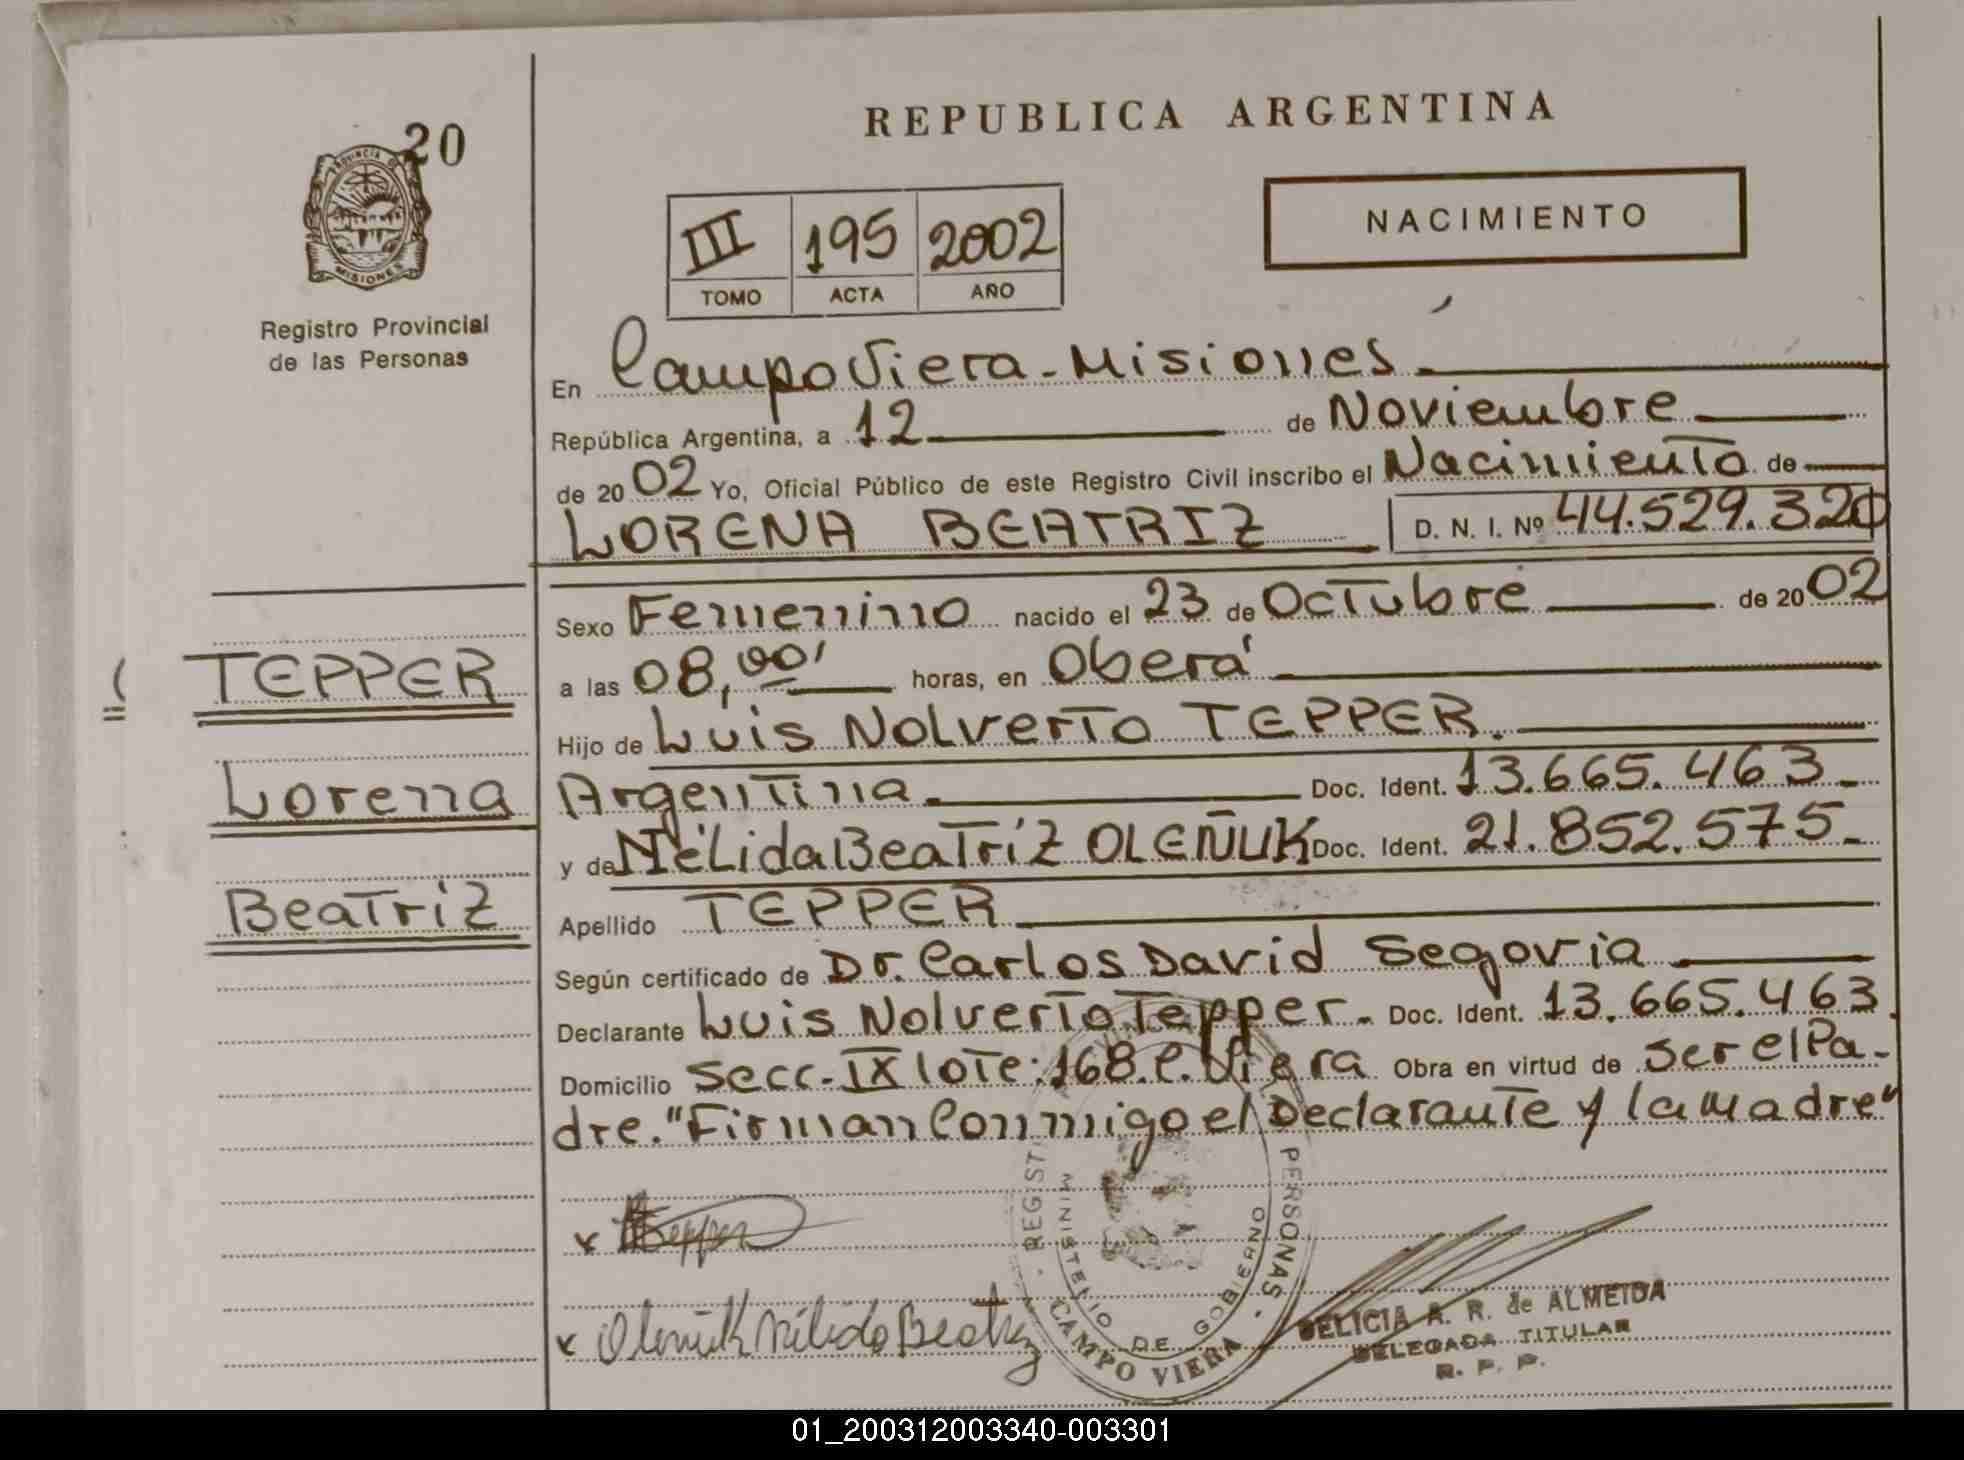 REPUBLICA ARGENTINA
20
PROVINCIA DE
MISIONES
Registro Provincial
de las Personas
III 195 2002
TOMO ACTA AÑO
NACIMIENTO
En Campo Viera - Misiones.
República Argentina, a 12 de Noviembre
de 2002 Yo, Oficial Público de este Registro Civil inscribo el Nacimiento de
LORENA BEATRIZ D. N. I. Nº 44.529.320
Sexo Femenino nacido el 23 de Octubre de 2002
a las 08,00' horas, en Oberá
Hijo de Luis Nolverto TEPPER.
Argentina. Doc. Ident. 13.665.463-
y de Nélida Beatríz OLEÑUK Doc. Ident. 21.852.575-
Apellido TEPPER
Según certificado de Dr. Carlos David Segovia
Declarante Luis Nolverto Tepper. Doc. Ident. 13.665.463.
Domicilio Secc.-IX lote:168.C.Viera Obra en virtud de ser el Pa-
dre. "Firman Conmigo el Declarante y la Madre"
TEPPER
Lorena
Beatríz
x Tepper
x Oleñuk Nélida Beatriz
REGIST PERSONAS
MINISTERIO DE GOBIERNO
CAMPO VIERA
DELICIA A. R. de ALMEIDA
DELEGADA TITULAR
R. P. P.
01_200312003340-003301